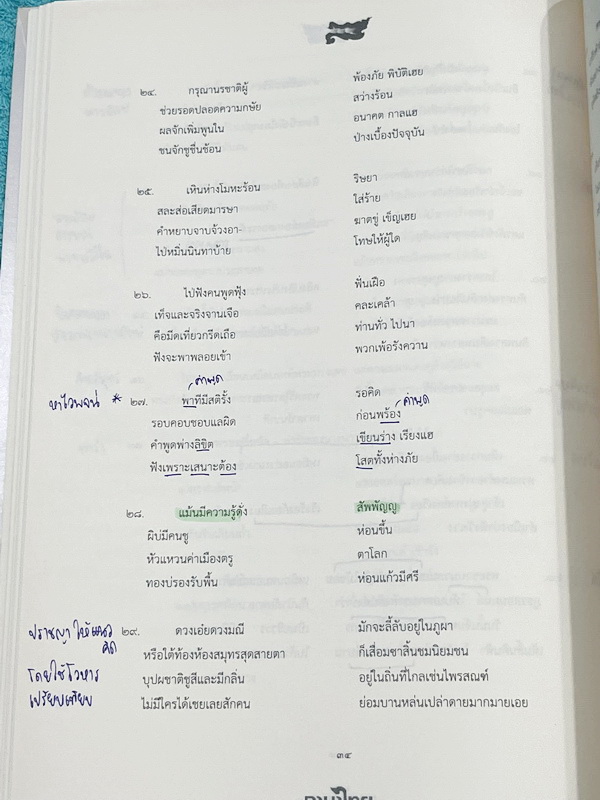 ๒๔. กรุณานรชาติผู้ พ้องภัย พิบัติเฮย
ช่วยรอดปลอดความกษัย สว่างร้อน
ผลจักเพิ่มพูนใน อนาคต กาลแฮ
ชนจักชูชื่นช้อน ป่างเบื้องปัจจุบัน
๒๕. เหินห่างโมหะร้อน ริษยา
สละส่อเสียดมารษา ใส่ร้าย
คำหยาบจาบจ้วงอา- ฆาตขู่ เข็ญเฮย
ไป่หมิ่นนินทาบ้าย โทษให้ผู้ใด
๒๖. ไป่ฟังคนพูดฟุ้ง ฟั่นเฝือ
เท็จและจริงจานเจือ คละเคล้า
คือมีดเที่ยวกรีดเถือ ท่านทั่ว ไปนา
ฟังจะพาพลอยเข้า พวกเพ้อรังควาน
คำพูด
หาไวพจน์ * ๒๗. พาทีมีสติรั้ง รอคิด
คำพูด
รอบคอบชอบแลผิด ก่อนพร้อง
คำพูดพ่างลิขิต เขียนร่าง เรียงแฮ
ฟังเพราะเสนาะต้อง โสตทั้งห่างภัย
๒๘. แม้นมีความรู้ดั่ง สัพพัญญู
ผิบ่มีคนชู ห่อนขึ้น
หัวแหวนค่าเมืองตรู ตาโลก
ทองบ่รองรับพื้น ห่อนแก้วมีศรี
ปราชญา ให้แนวคิด
โดยใช้โวหาร
เปรียบเทียบ
๒๙. ดวงเอ๋ยดวงมณี มักจะลี้ลับอยู่ในภูผา
หรือใต้ท้องห้องสมุทรสุดสายตา ก็เสื่อมซาสิ้นชมนิยมชน
บุปผชาติชูสีและมีกลิ่น อยู่ในถิ่นที่ไกลเช่นไพรสณฑ์
ไม่มีใครได้เชยเลยสักคน ย่อมบานหล่นเปล่าดายมากมายเอย
๓๔
ภาษาไทย